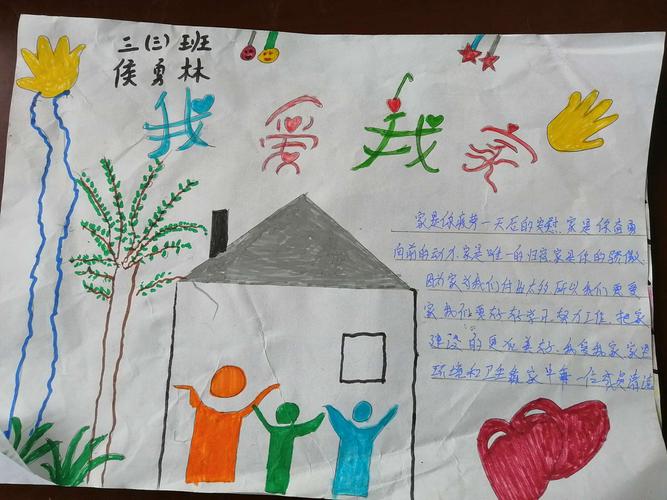 三(三)班
侯勇林
我爱我家
家是你疲劳一天后的安慰,家是你奋勇
向前的动力.家是唯一的归宿,家是你的骄傲.
因为家为我们付出太多,所以我们更要
家,我们要好好学习,努力工作,把家
建设的更加美好,我爱我家,家里
环境和卫生靠家中每一位成员